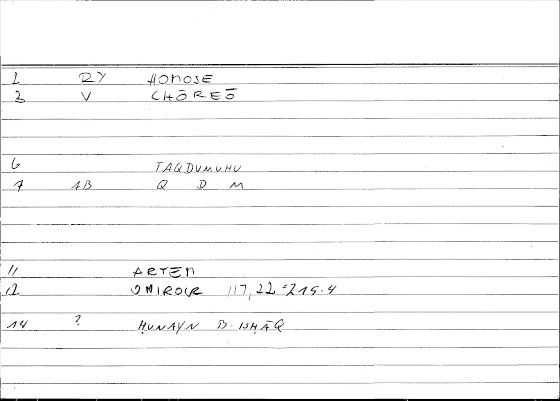 1 RY HOMOSE
3 V CHŌREŌ
6 TAQDUMUHU
7 1B Q D M
11 ARTEM
12 ONIROCR 117,22=215.4
14 ? ḤUNAYN B. ISḤĀQ